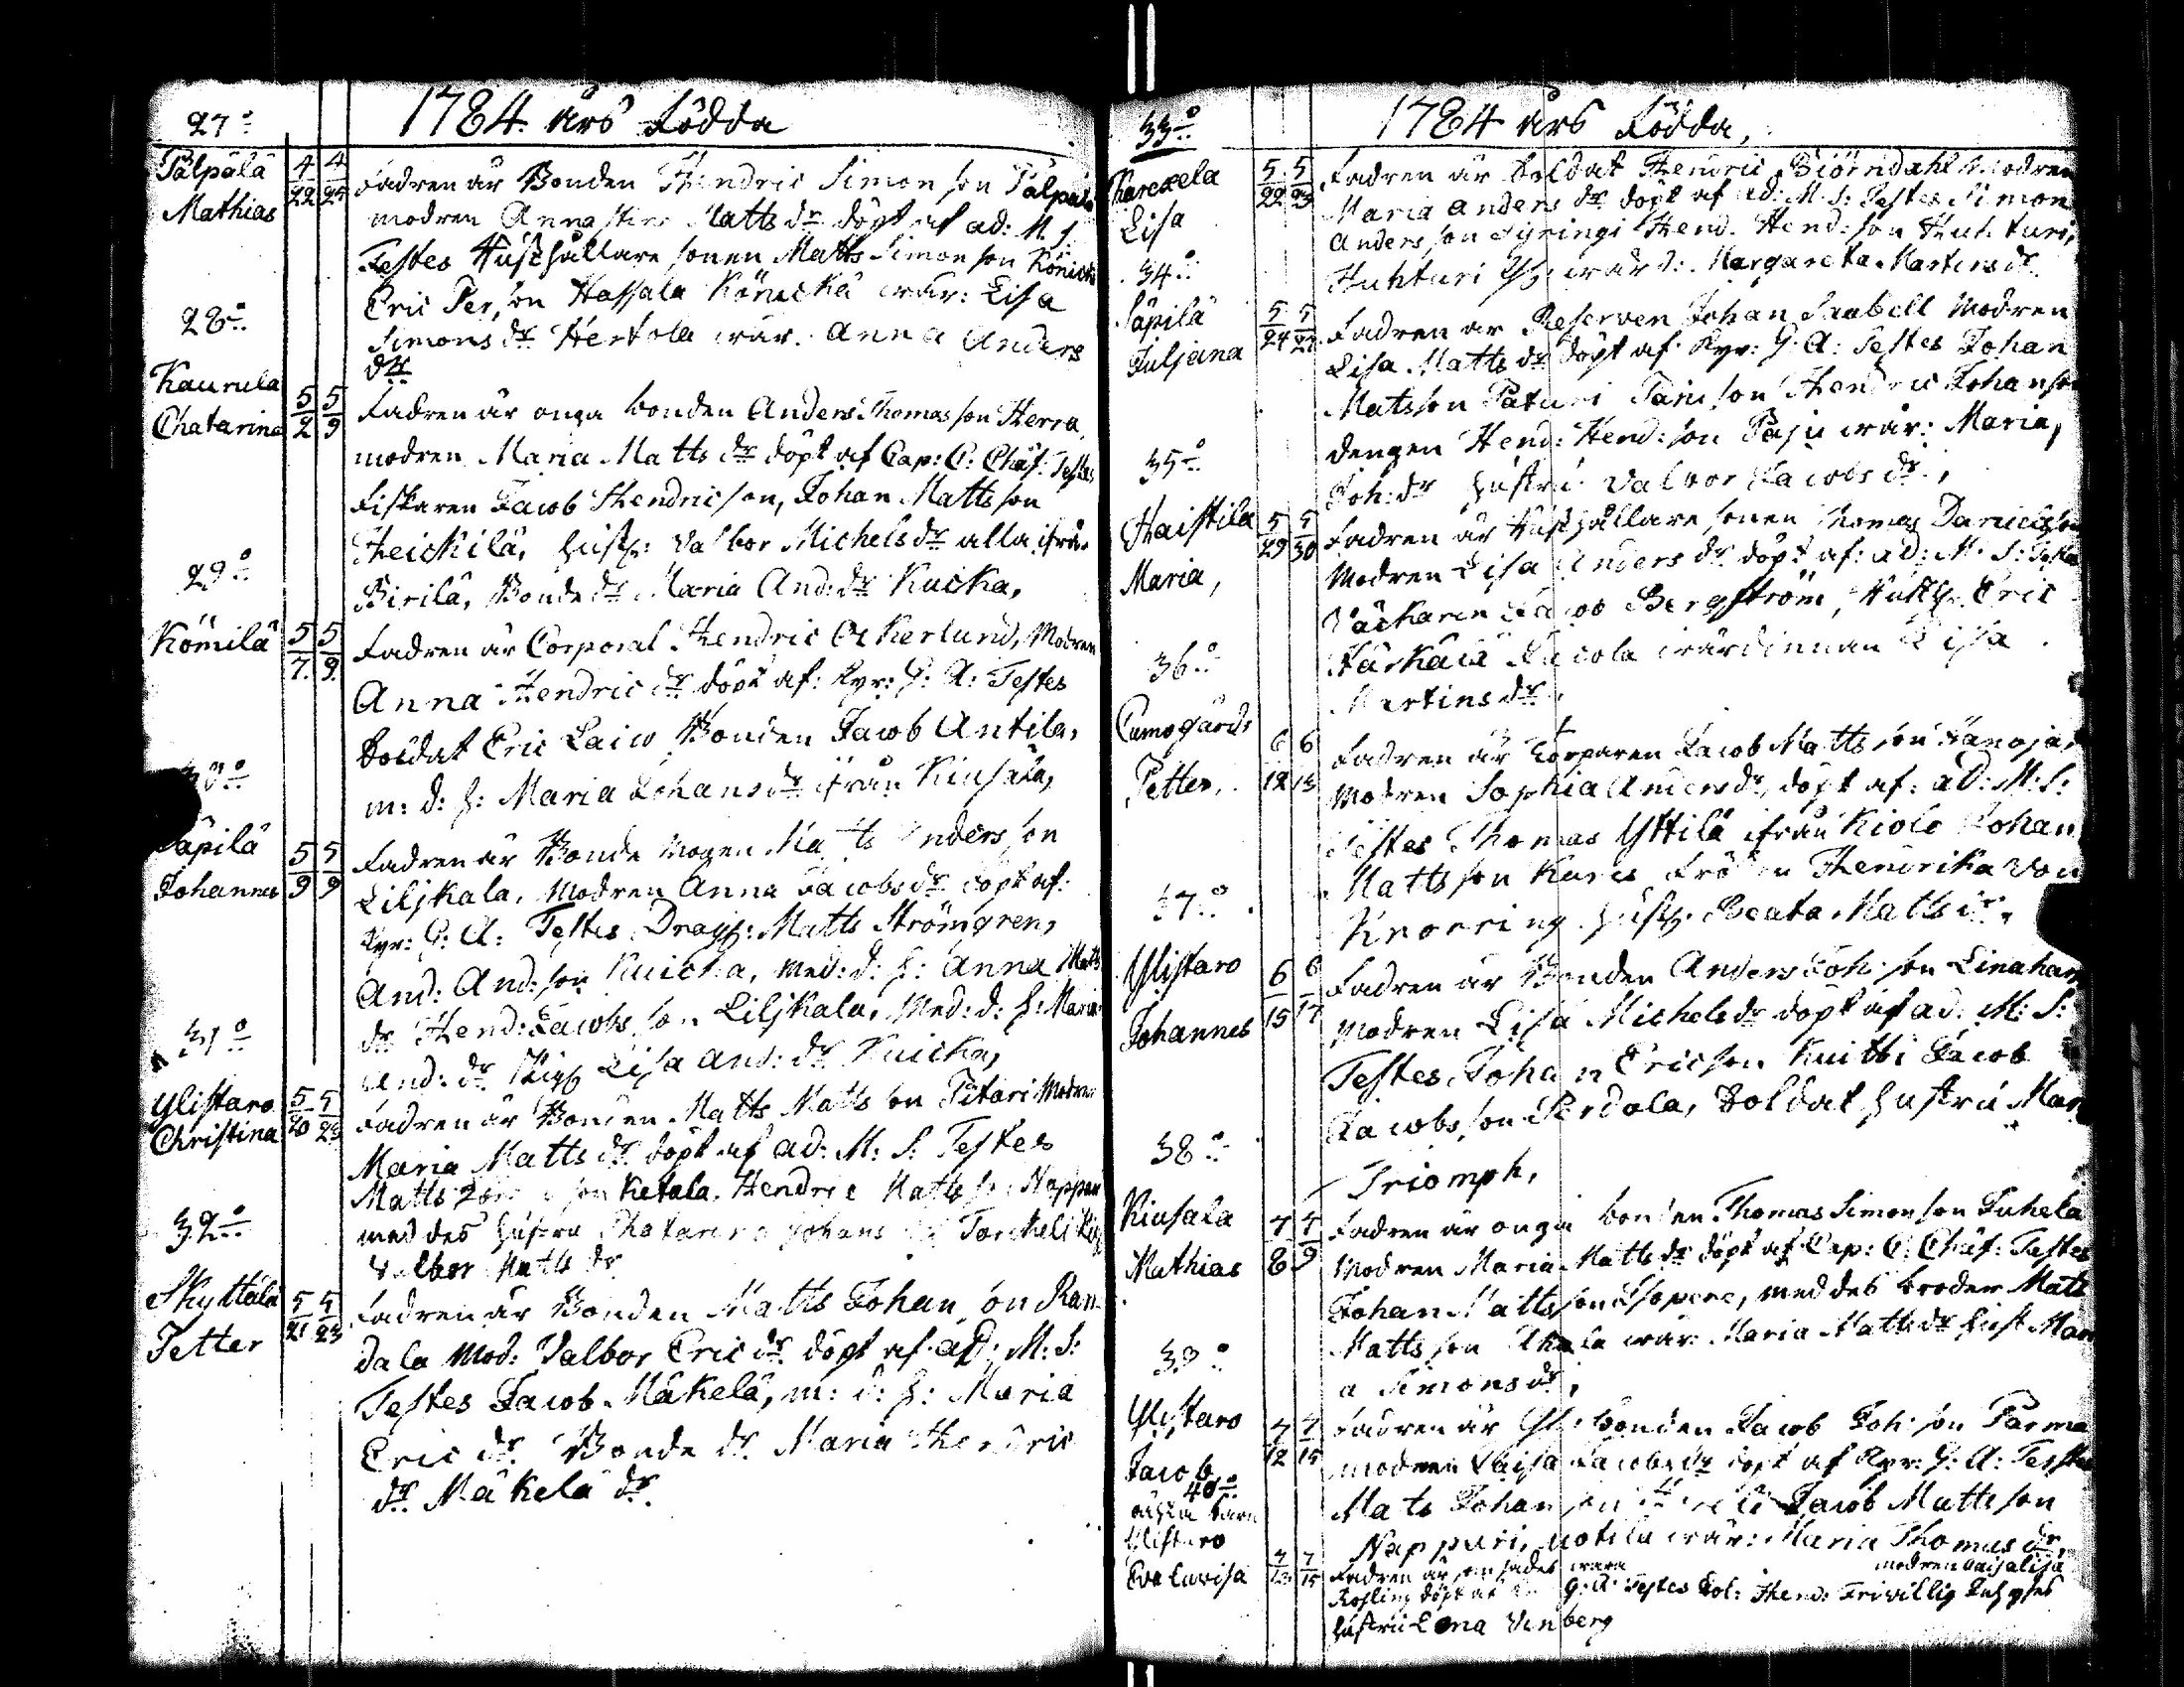 27o
1784 års Födda
Pälpälä 4/22 4/25 Fadren är Bonden Hendric Simon son Pälpälä
Mathias modren Anna Matts dr döpt af ad: M. S:
Testes Hushållare sonen Matts Simon son Könickä
Eric Per son Hassala Könickä wär: Lisa
28o Simons dr Hertola wär. Anna Anders
dr
Kaurula 5/2 5/9 Fadren är onga bonden Anders Thomas son Herra,
Chatarina modren Maria Matts dr döpt af Cap: C: Chäf: Testes
Fiskaren Jacob Hendric son, Johan Matts son
Heickilä, hustr: Valbor Michels dr alla ifrån
29o Birilä, Bonde dr Maria And: dr Kuicka,
Kömilä 5/7 5/9 Fadren är Corporal Hendric Åkerlund, Modren
Anna Hendric dr döpt af: Kyr: G: A: Testes
Soldat Eric Laiw Bonden Jacob Antila,
30o m: d: h: Maria Johans dr ifrån Kiusala,
Säpilä 5/9 5/9 Fadren är Bonde Magen Matts Anders son
Johannes Liljkala, Modren Anna Jacobs dr döpt af:
Kyr: G: A: Testes Drag: Matts Strömgren,
And: And: son Kuicka, med: d: h: Anna Matts
31o dr Hend: Jacobs son Liljkala, Med: d: h: Maria
And: dr Pig Lisa And: dr Kuicka,
Ylistaro 5/20 5/23 Fadren är Bonden Matts Matts son Pitari Modren
Christina Maria Matts dr döpt af ad: M: S: Testes
Matts son Ketala, Hendric Matts son Nappari
32o med des hustru Chatarina Johans dr Torckeli
Valbor Matts dr
Skyttälä 5/21 5/23 Fadren är Bonden Matts Johan son Ran
Petter dala Mod: Valbor Eric dr döpt af ad: M: S:
Testes Jacob Mäkelä, m: d: h: Maria
Eric dr Bonde dr Maria Hendric
dr Mäkelä dr
33o
1784 års Födda,
Karexela 5/22 5/23 Fadren är Soldat Hendric Biörndahl Modren
Lisa Maria Anders dr döpt af ad: M. S: Testes Simon
Anders son Syringi Hend. Hend: son Huhturi,
34o Huhturi wärd: Margareta Martins dr
Säpilä 5/24 5/27 Fadren är Reserven Johan Snabell Modren
Juljana Lisa Matts dr döpt af Kyr: G: A: Testes Johan
Matsson Paturi son Hendric Johan son
35o dengen Hend: Hend: son Paju wär: Maria,
Joh: dr hustru Valbor Jacobs dr,
Haistila 5/29 5/30 Fadren är Hushållare sonen Thomas Daniels son
Maria, Modren Lisa Anders dr döpt af: ad: M. S: Testes
Jacob Bergström, Eric
36o wärdinnan Lisa
Martins dr,
Cumogårds 6/12 6/13 Fadren är Torparen Jacob Matts son Hanoja,
Petter, Modren Sophia Anders dr, döpt af: ad: M: S:
Testes Thomas Yttilä ifrån Kiolo Johan
37o Matts son Fröken Hendrika von
Knorring hustr. Beata Matts dr,
Ylistaro 6/15 6/17 Fadren är Bonden Anders Joh: son Linahar
Johannes Modren Lisa Michels dr döpt af ad: M: S:
Testes Johan Ericson Knitti Jacob
38o Jacobs son Perdola, Soldat hustru Mar
Triomph,
Kiusala 7/8 7/9 Fadren är onga bonden Thomas Simon son Juhela
Mathias Modren Maria Matts dr döpt af Cap: C: Chäf: Testes
Johan Matts son Isopere, med des broder Matt
39o Matts son wär: Maria Matts dr hust Mari
a Simons dr,
Ylistaro 7/12 7/15 Fadren är bonden Jacob Joh: son Parma
Jacob modren Caisa Jacobs dr döpt af Kyr: G: A: Testes
40o Mats Johan son Jacob Matts son
oächta barn Nappari, Uotila wär: Maria Thomas dr,
Ylistaro 7/13 7/15 Fadren är sades wara modren Caisalisa
Eva Lovisa Rosling döpt af G: A: Testes Sol: Hend: Friwillig
hustru Lena Venberg